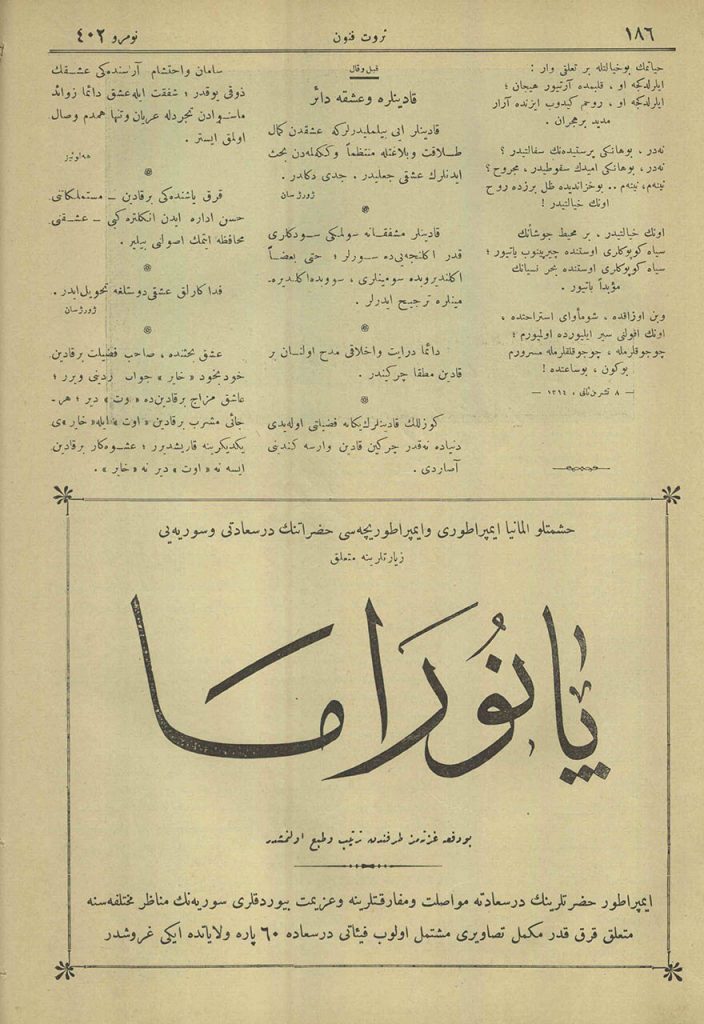 ١٨٦
ثروت فنون
نومرو ٤٠٢
حياتمك بوخيالتله بر تعلق وار :
ايلرلدكجه او ، قلبمده آرتيور هيجان ؛
ايلرلدكجه او ، روحم كيدوب ايزنده آرار
مديد برهجران .
نه‌در ، بوهانكى پرستيده‌نك سفالتيدر ؟
نه‌در ، بوهانكى اميدك سقوطيدر ، مجروح ؟
نينه‌م ، نينه‌م .. بوخزانديده ظل برزده روح
اونك خيالتيدر !
اونك خيالتيدر ، بر محيط جوشانك
سياه كوپوكلرى اوستنده چيرپينوب ياتيور ؛
سياه كوپوكلرى اوستنده بحر نسيانك
مؤبداً ياتيور .
وبن اوزاقده ، شومأواى استراحتده ،
اونك افولنى سير ايليورده اولميورم ؛
چوجوقلرمله ، چوجوقلقلرمله مسرورم
بوكون ، بوساعتده !
— ٨ تشرين ثانى ، ١٣١٤ —
قيل وقال
قادينلره وعشقه دائر
قادينلر ايى بيلمليدرلركه عشقدن كمال
طلاقت وبلاغتله منتظماً و ككه‌له‌مه‌دن بحث
ايدنلرك عشقى جعليدر . جدى دكلدر .
ژورژ سان
قادينلر مشفقانه سولمكى سودكلرى
قدر اكلنجه‌يى‌ده سورلر ؛ حتى بعضاً
اكلنديروبده سومينلرى ، سووبده اكلنديره‌ـ
مينلره ترجيح ايدرلر .
دائما درايت واخلاقى مدح اولنان بر
قادين مطلقا چركيندر .
كوزللك قادينلرك يكانه فضيلتى اوله‌يدى
دنياده نه‌قدر چركين قادين وارسه كندينى
آصاردى .
سامان واحتشام آرسنده‌كى عشقك
ذوقى يوقدر ؛ شفقت ايله عشق دائما زوائد
ماسوادن تجردله عريان وتنها همدم وصال
اولمق ايستر .
هه‌لوئيز
قرق ياشنده‌كى برقادين — مستملكاتنى
حسن اداره ايدن انكلتره كبى — عشقنى
محافظه ايتمك اصولنى بيلير .
فداكارلق عشقى دوستلغه تحويل ايدر .
ژورژسان
عشق بحثنده ، صاحب فضيلت برقادين
خودبخود « خاير » جواب ردينى ويرر ؛
عاشق مزاج برقادين‌ده « اوت » دير ؛ هرـ
جائى مشرب برقادين « اوت » ايله « خاير » ى
يكديكرينه قاريشديرر ؛ عشوه‌كار برقادين
ايسه نه « اوت » دير نه « خاير » .
حشمتلو المانيا ايمپراطورى وايمپراطوريچه‌سى حضراتنك درسعادتى وسوريه‌يى
زيارتلرينه متعلق
پانوراما
بودفعه غزته‌مز طرفندن ترتيب وطبع اولنمشدر
ايمپراطور حضرتلرينك درسعادته مواصلت ومفارقتلرينه وعزيمت بيوردقلرى سوريه‌نك مناظر مختلفه‌سنه
متعلق قرق قدر مكمل تصاويرى مشتمل اولوب فيئاتى درسعاده ٦٠ پاره ولاياتده ايكى غروشدر